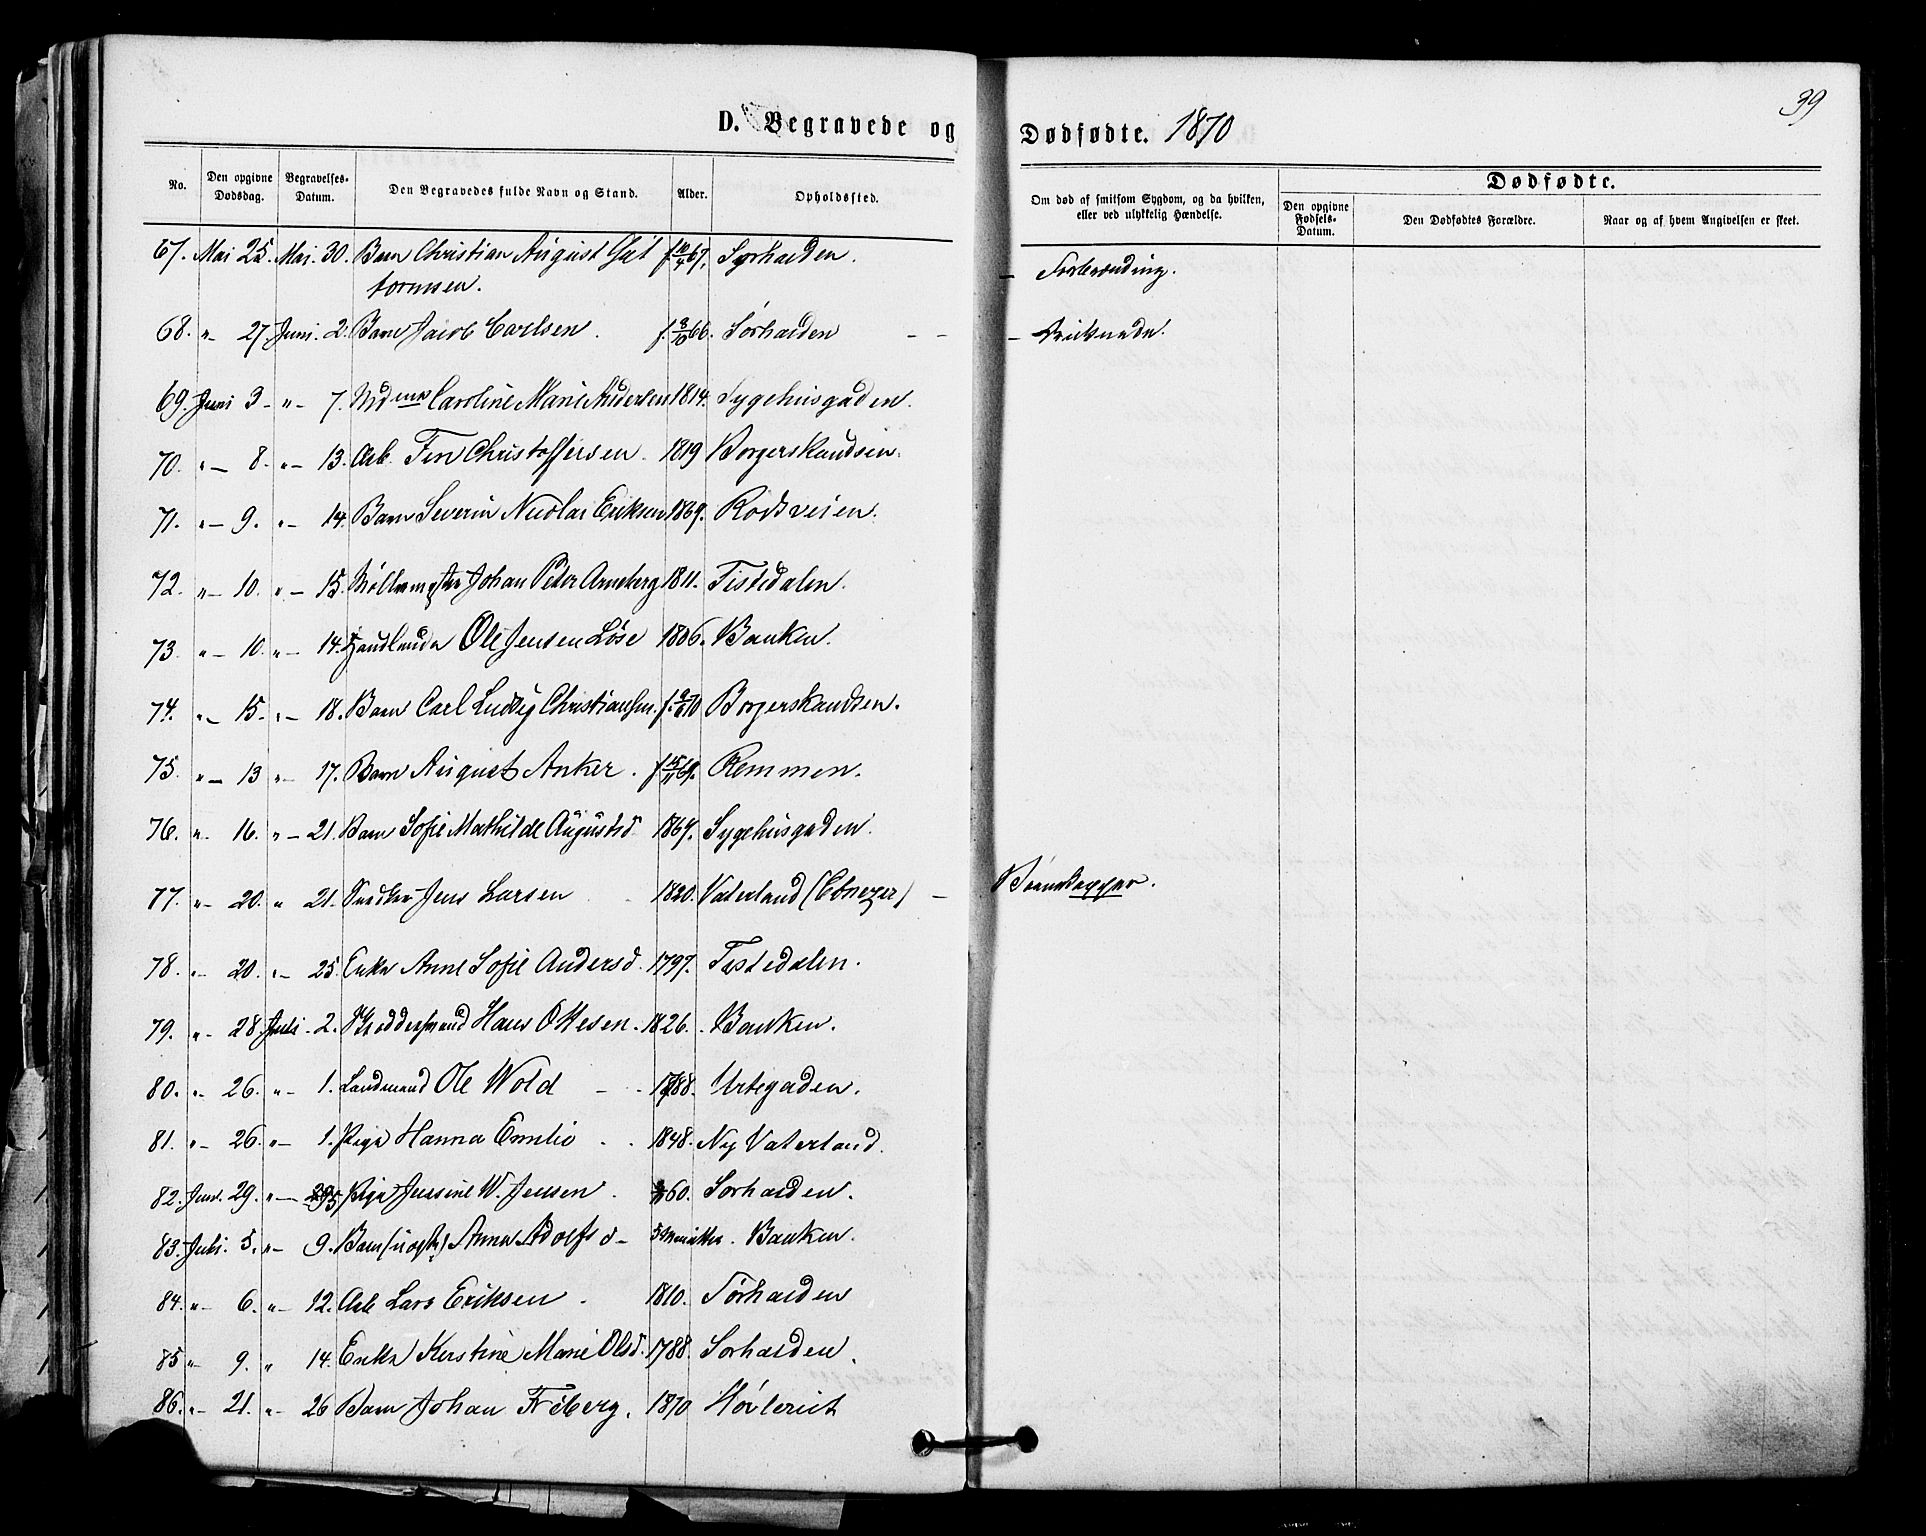 39
D. Begravede og Dødfødte. 1870
No. Den opgivne Dødsdag. Begravelses-Datum. Den Begravedes fulde Navn og Stand. Alder. Opholdssted. Om død af smitsom Sygdom, og da hvilken, eller ved ulykkelig Hændelse. Dødfødte.
Den opgivne Fødsels-Datum. Den Dødfødtes Forældre. Naar og af hvem Angivelsen er skeet.
67. Mai 25. Mai. 30. Barn Christian August Gut f. 10/4 67. Sørhalden. - Forbrænding.
tormsen.
68. " 27. Juni. 2. Barn Jacob Carlsen. f. 66. Sørhalden - - -
69. Juni 3 - " - 7. Caroline Marie Andersen 1814. Sygehusgaden.
70. " - 8. " - 13. Arb. Finn Christoffersen. 1819 Borgerskandsen.
71. " - 9. " - 14. Barn Severin Nicolai Eriksen 1869. Rødsveien.
72. " - 10. " - 15. Møllemester Johan Peter Arneberg 1811. Tistedalen.
73. " - 10. " - 14. Handlende Ole Jensen Løse 1806. Banken.
74. " - 15. " - 18. Barn Carl Ludvig Christiansen. f. 70 Borgerskandsen.
75. " - 13 " - 17. Barn August Anker. f. 15/11 69. Remmen.
76. " 16. " - 21. Barn Sofie Mathilde Augustsd. 1867. Sygehusgaden.
77. " - 20. " 21. Snedker Jens Larsen 1820. Vaterland (Ebnezer) - Børnekopper.
78. " - 20. " - 25. Enke Anne Sofie Andersd. 1797. Tistedalen.
79. " - 28. Juli - 2. Hans Ottesen. 1826. Banken.
80. " - 26. " - 1. Landmand Ole Wold - - 1788. Urtegaden.
81. " - 26. " - 1. Pige Hanna Emilie . . 1848. Ny Vaterland.
82. Juni. 29. " - 5 Pige Jensine W. Jensen. 60. Sørhalden.
83. Juli. 5. " - 9. Barn (uægte) Anna Adolfsd - Banken.
84. " - 6. " - 12. Arb Lars Eriksen - 1810. Sørhalden
85 " - 9. " 14. Enke Kerstine Marie Olsd. 1788. Sørhalden.
86. " - 21. " - 26 Barn Johan Friberg. 1870 Høvleriet